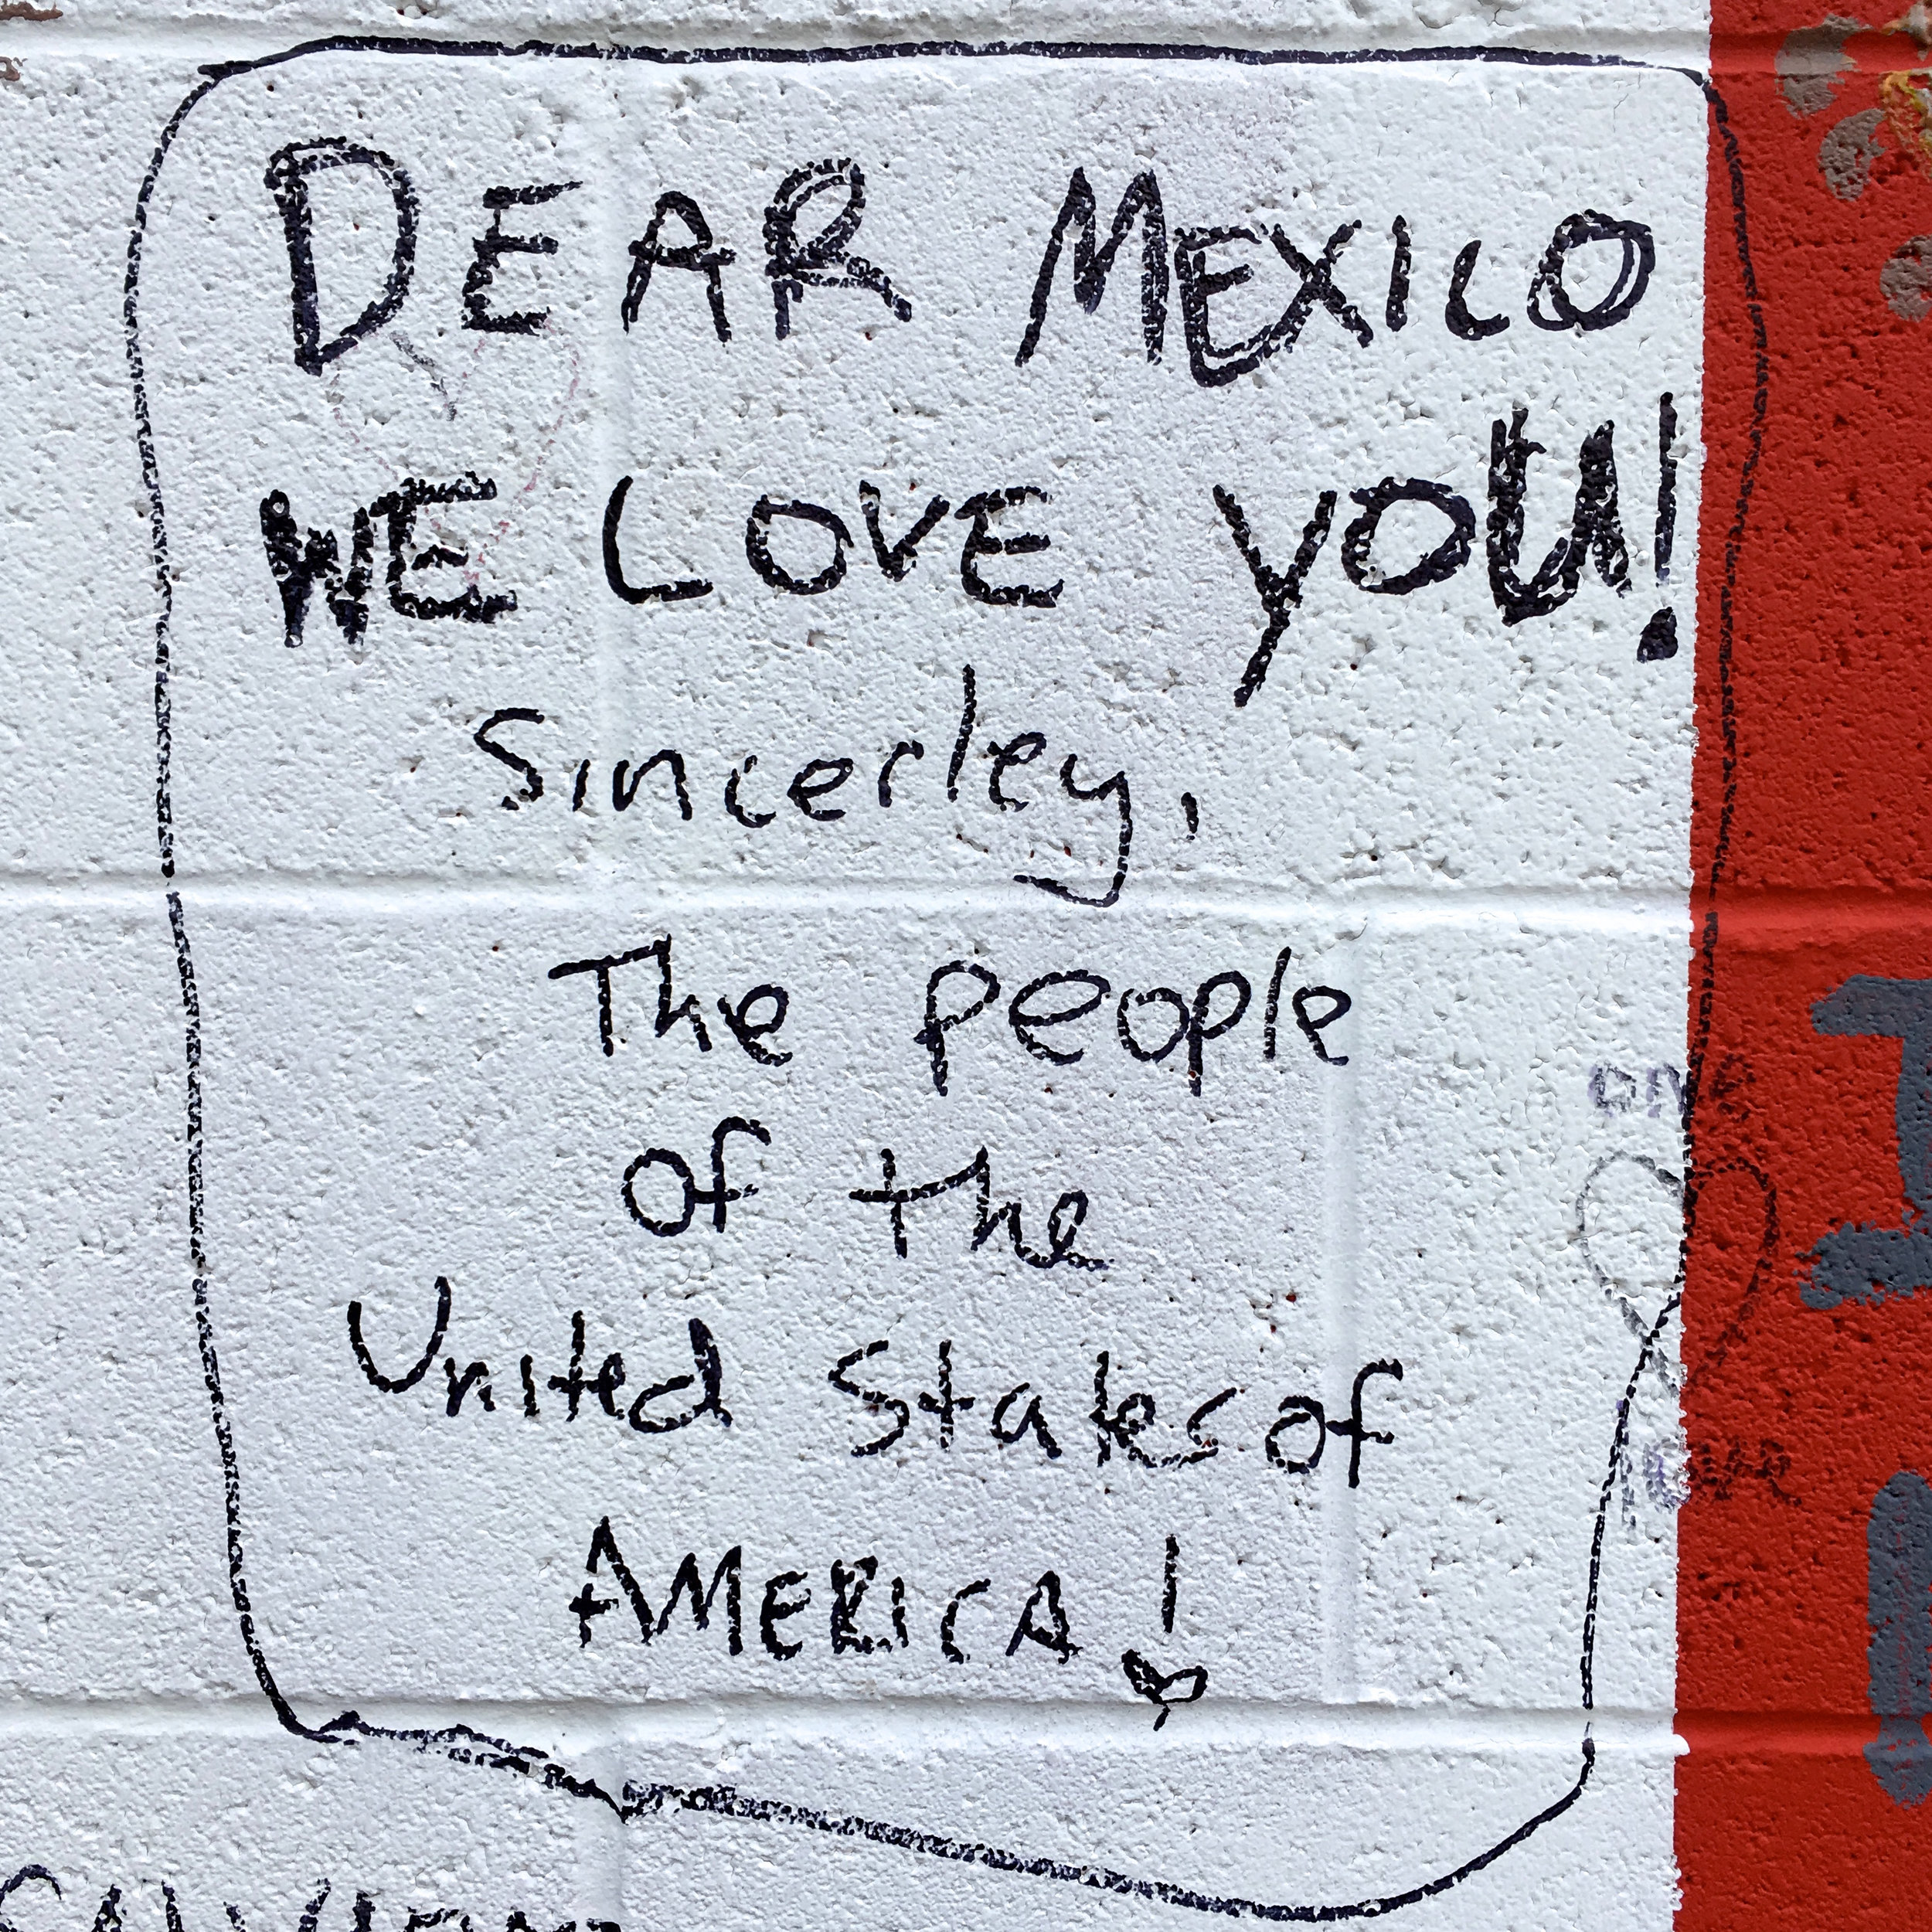 DEAR MEXICO
WE LOVE YOU!
Sincerley,
The people
of the
United States of
AMERICA!